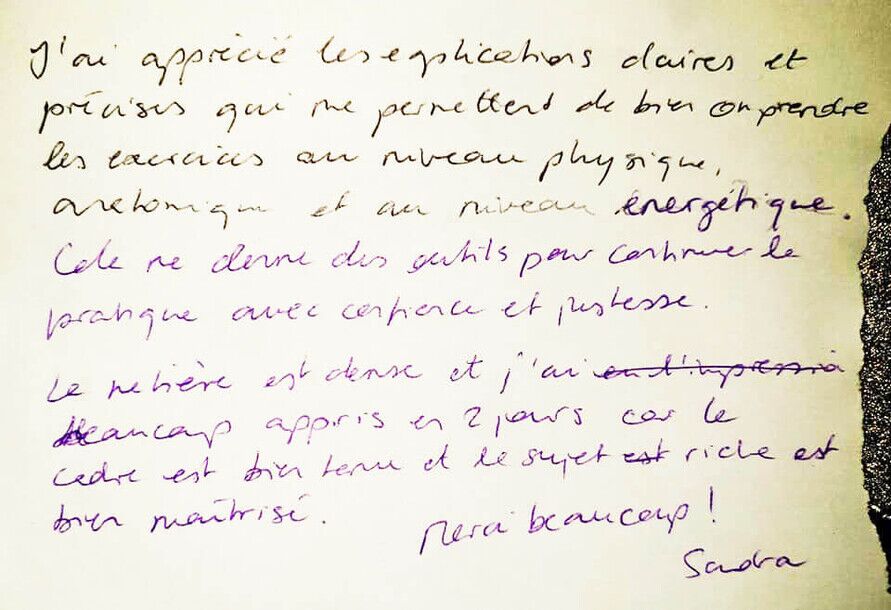 J'ai apprécié les explications claires et
précises qui me permettent de bien comprendre
les exercices au niveau physique,
anatomique et au niveau énergétique.
Cela me donne des outils pour continuer la
pratique avec confiance et justesse.
La matière est dense et j'ai eu l'impression
beaucoup appris en 2 jours car le
cadre est bien tenu et le sujet est riche est
bien maîtrisé.
Merci beaucoup !
Sandra